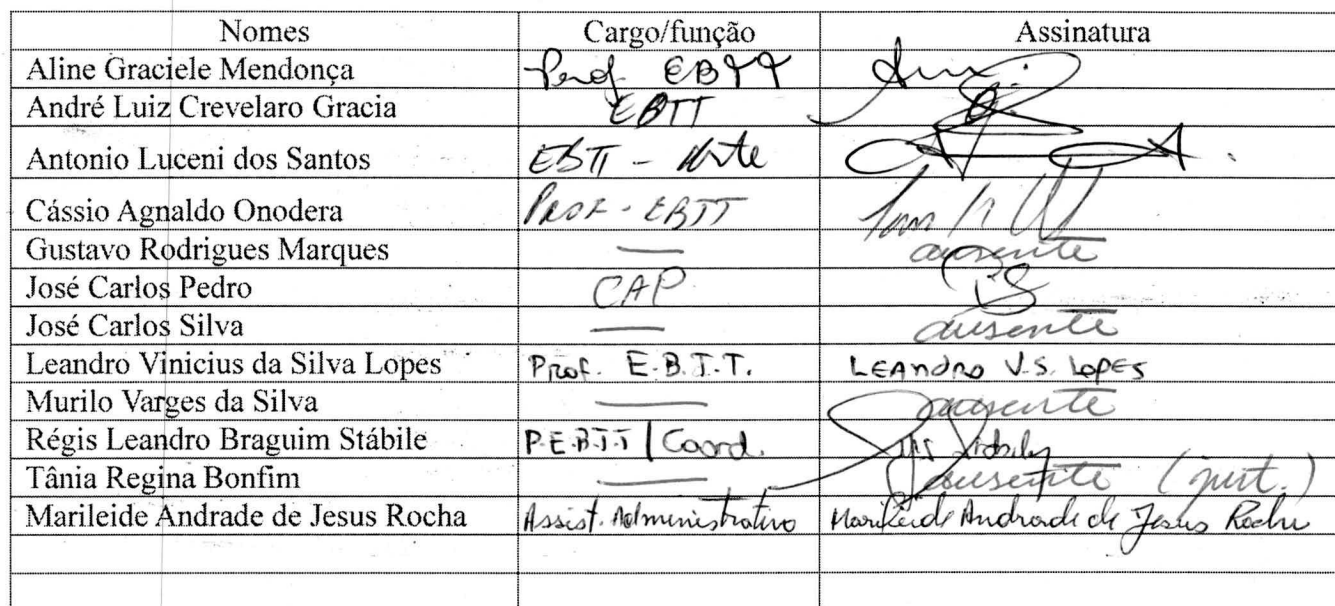 Nomes Cargo/função Assinatura
Aline Graciele Mendonça Prof EBTT
André Luiz Crevelaro Gracia EBTT
Antonio Luceni dos Santos EBTT - Arte
Cássio Agnaldo Onodera PROF - EBTT
Gustavo Rodrigues Marques — ausente
José Carlos Pedro CAP
José Carlos Silva — ausente
Leandro Vinicius da Silva Lopes Prof. E.B.T.T. LEANDRO V.S. LOPES
Murilo Varges da Silva — ausente
Régis Leandro Braguim Stábile P.E.B.T.T | Coord.
Tânia Regina Bonfim — ausente (just.)
Marileide Andrade de Jesus Rocha Assist. Administrativo Marileide Andrade de Jesus Rocha